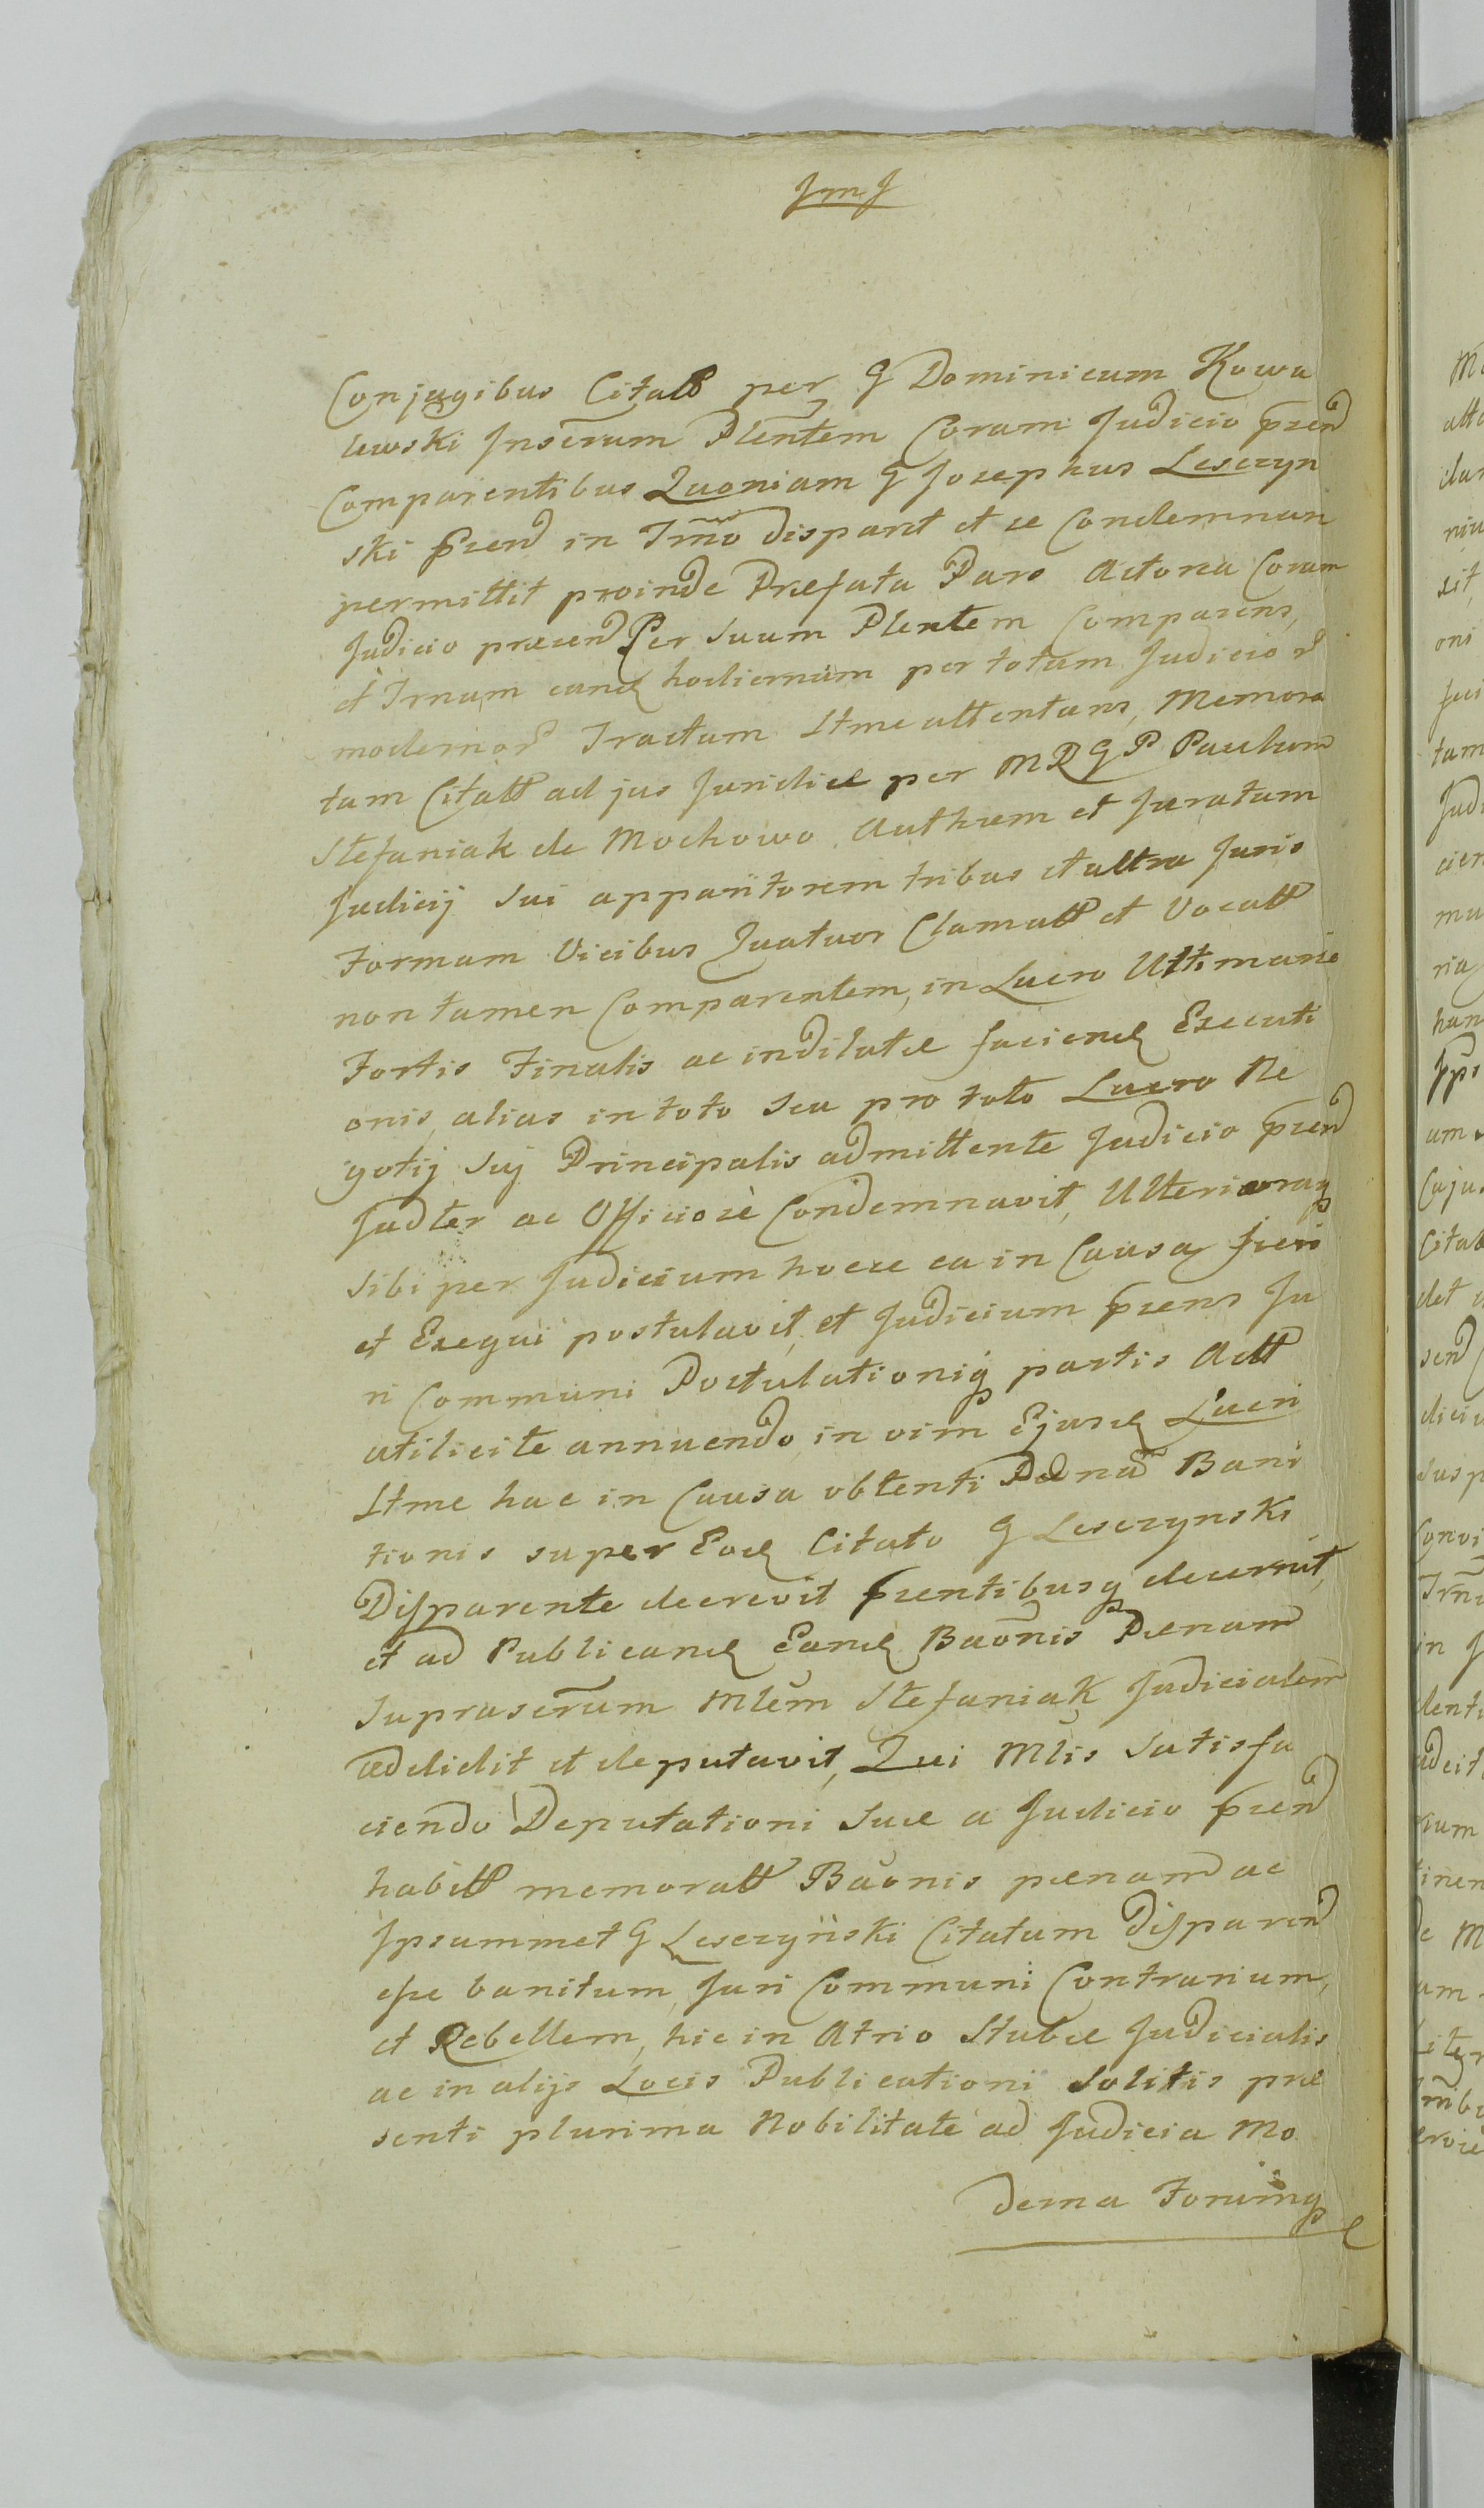 JmJ
Conjugibus Citatt per G Dominicum Kowa
lewski Inscrum Plentem Coram Judicio prend
Comparentibus Quoniam G Josephus Lesczyn
ski prend in Trno disparet et se Condemnari
permittit proinde Præfata Pars Actorea Coram
Judicio præsend Per suum Plentem Comparens,
et Trnum eand hodiernum per totam Judicior
modernor Tractum Ltme attentans, Memora
tam Citatt ad jus Juridice per MRGP Paulum
Stefaniak de Mochowo Authrem et Juratum
Judicij sui apparitorem tribus et ultra Juris
Formam Vicibus Quatuor Clamatt et Vocatt
non tamen Comparentem, in Lucro Ultimarie
Fortis Finalis ac indilatæ faciend Executi
onis, alias in toto seu pro toto Lucro Ne
gotij suj Principalis admittente Judicio prend
Judter ac Officiose Condemnavit, Ulterioraq
sibi per Judicium hocce ea in Causa fieri
et Exequi postulavit, et Judicium prens Ju
ri Communi Postulationiq partis Actt
utilicite annuendo in vim Ejusd Lucri
Ltme hac in Causa obtenti Pœnam Bani
tionis super Eod Citato G Lesczynski
Disparente decrevit prentibusq decernit,
et ad Publicand Eand Baonis Pœnam
Suprascrum Mlem Stefaniak Judicialem
addidit et deputavit, Qui Mlis Satisfa
ciendo Deputationi suæ a Judicio prend
habitt memoratt Baonis pœnam ac
Ipsummet G Lesczyński Citatum Disparend
esse banitum, Juri Communi Contrarium,
et Rebellem, hic in Atrio Stubæ Judicialis
ac in alijs Locis Publicationi Solitis præ
senti plurima Nobilitate ad Judicia Mo
derna Forumq